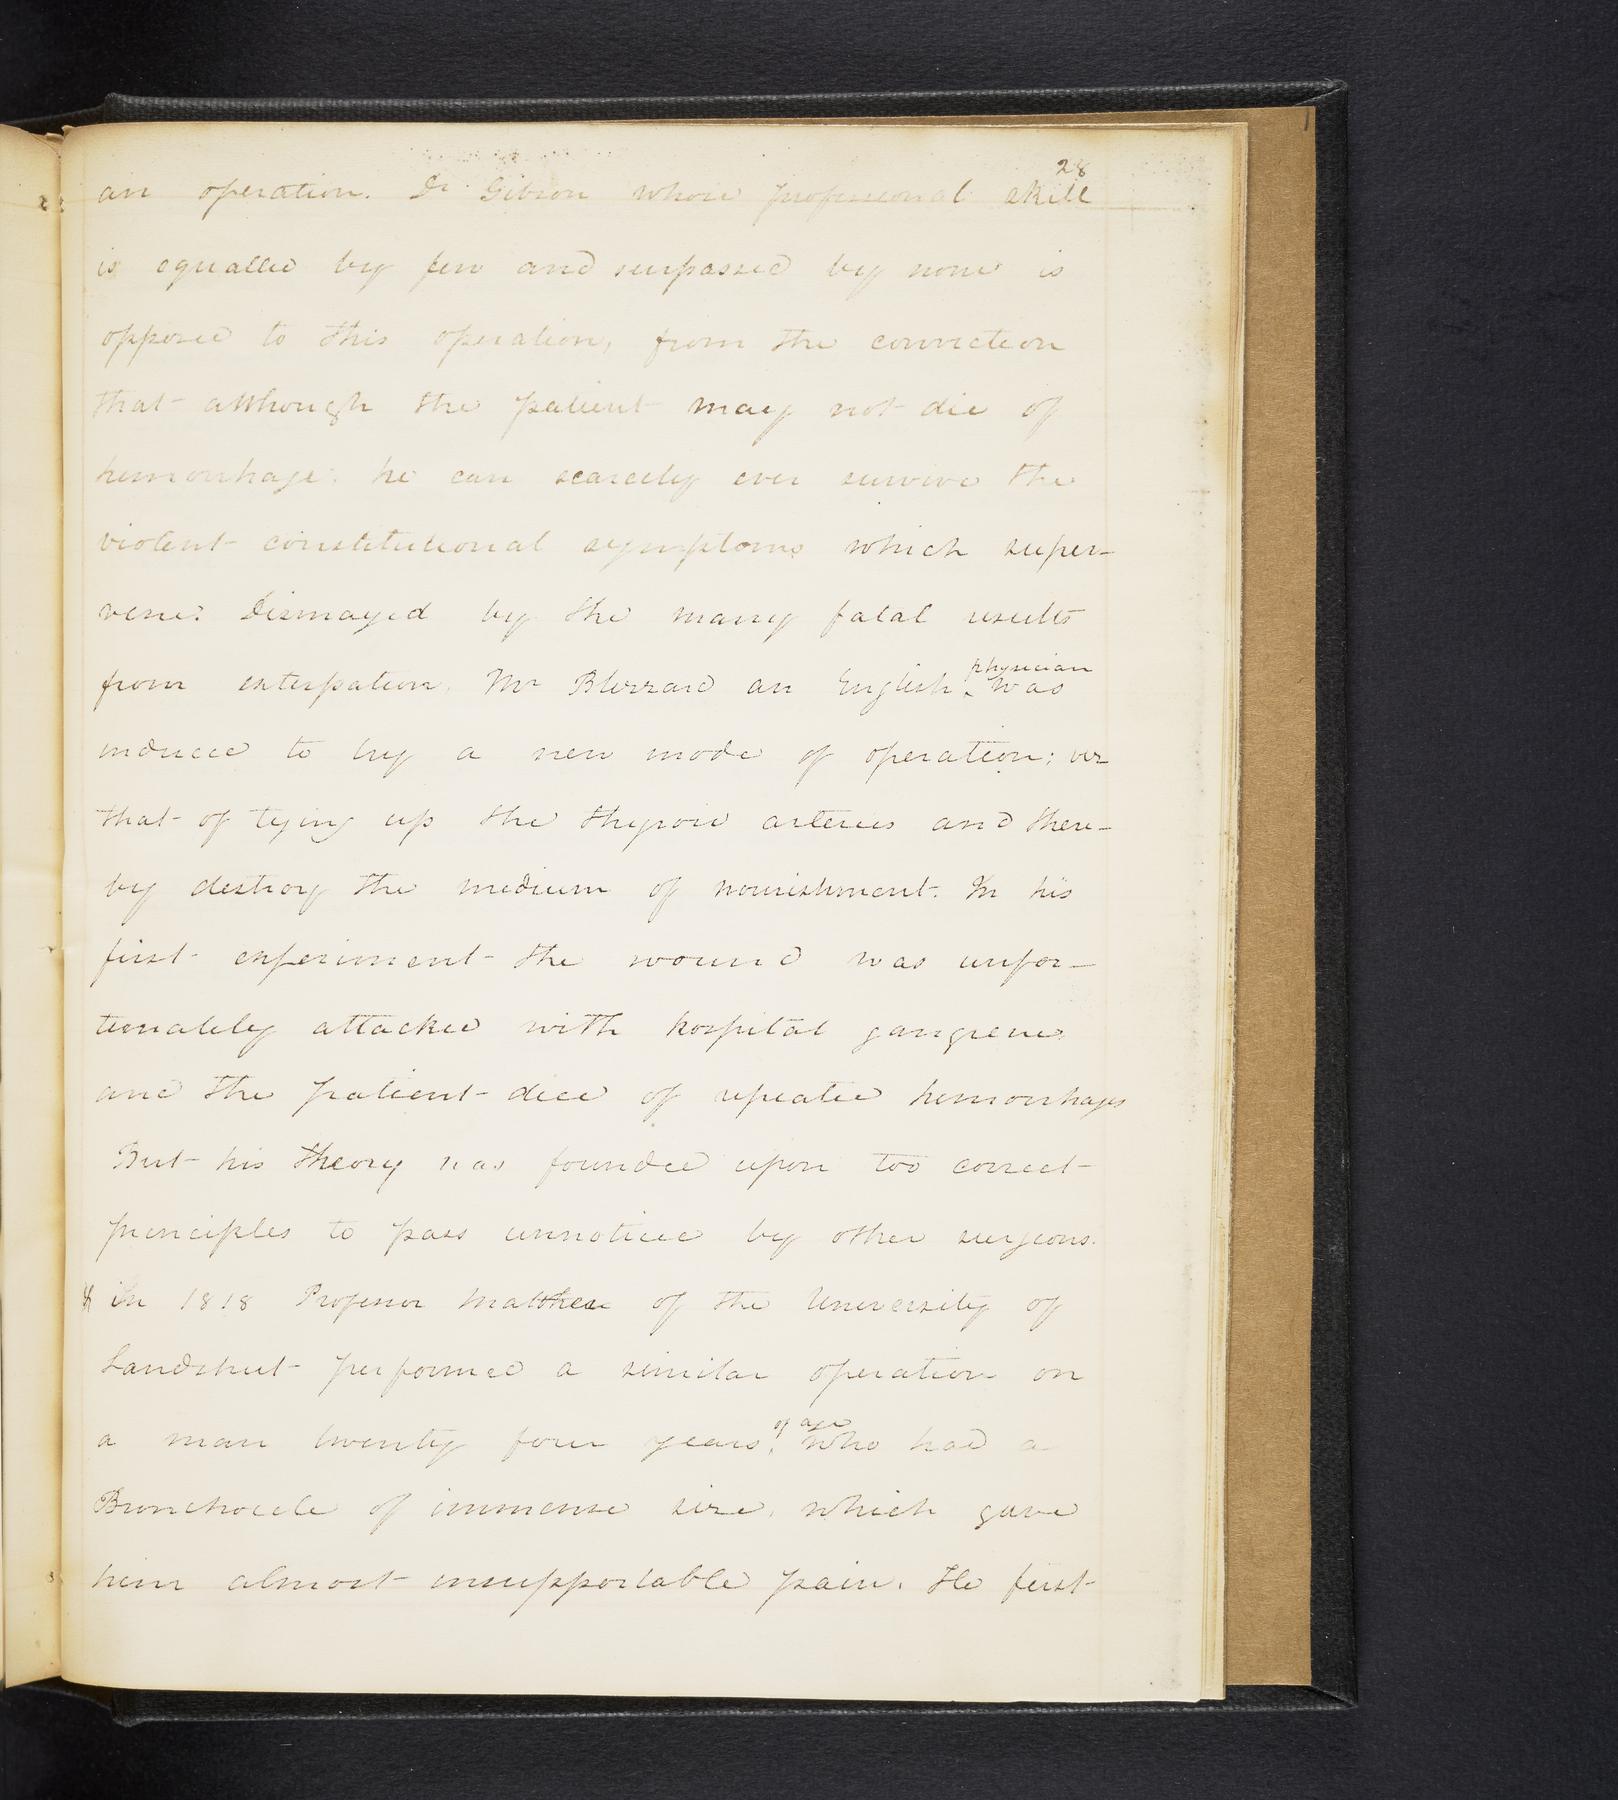 28
an operation. Dr Gibson whose professional skill
is equalled by few and surpassed by none is
opposed to this operation, from the conviction
that although the patient may not die of
hemorrhage, he can scarcely ever survive the
violent constitutional symptoms which super-
vene. Dismayed by the many fatal results
from extirpation, Mr Blizzard an English physician was
induced to try a new mode of operation; viz
that of tying up the thyroid arteries and there-
by destroy the medium of nourishment. In his
first experiment the wound was unfor-
tunately attacked with hospital gangrene
and the patient died of repeated hemorrhages
But his theory was founded upon too correct
principles to pass unnoticed by other surgeons.
In 1818 Professor of the University of
Landshut performed a similar operation on
a man twenty four years of age who had a
Bronchocele of immense size, which gave
him almost insupportable pain. He first